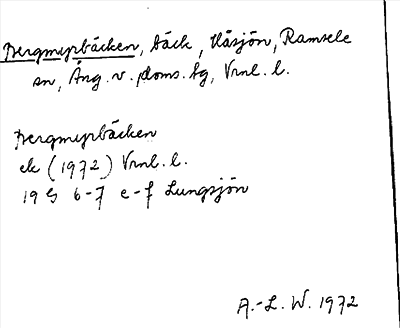 Bergmyrbäcken, bäck, Håsjön, Ramsele
sn, Ång. v. doms. sg, Vrnl. l.
Bergmyrbäcken
ek (1972) Vrnl. l.
19 G 6-7 e-f Lungsjön
A.-L. W. 1972